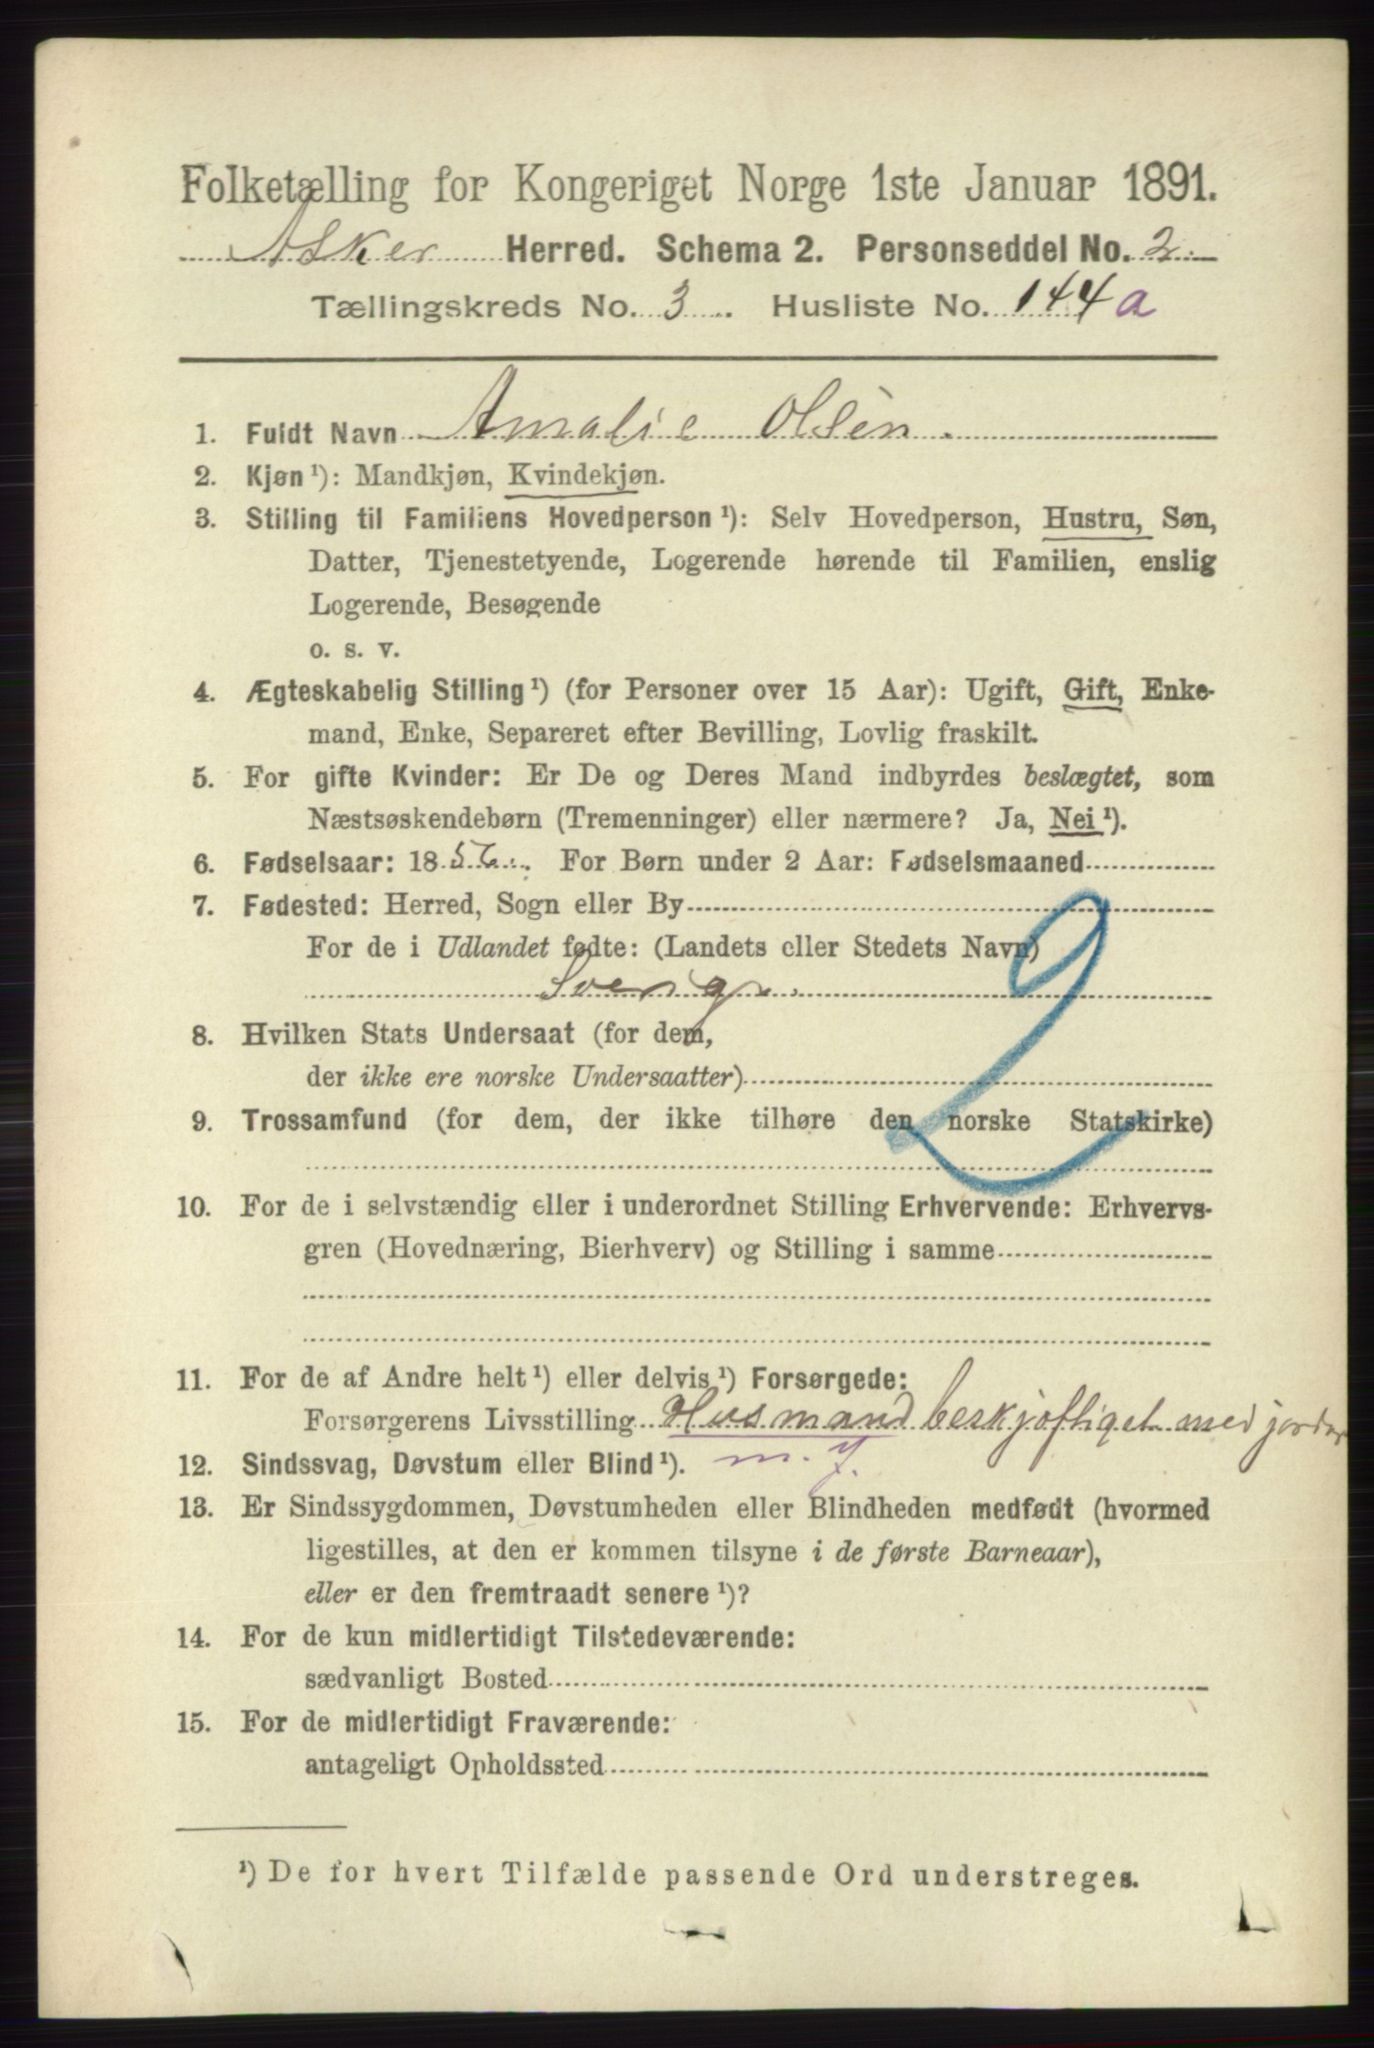 Folketælling for Kongeriget Norge 1ste Januar 1891.
Asker Herred. Schema 2. Personseddel No. 2.
Tællingskreds No. 3. Husliste No. 144 a
1. Fuldt Navn Amalie Olsen.
2. Kjøn ¹): Mandkjøn, Kvindekjøn.
3. Stilling til Familiens Hovedperson ¹): Selv Hovedperson, Hustru, Søn,
Datter, Tjenestetyende, Logerende hørende til Familien, enslig
Logerende, Besøgende
o. s. v.
4. Ægteskabelig Stilling ¹) (for Personer over 15 Aar): Ugift, Gift, Enke-
mand, Enke, Separeret efter Bevilling, Lovlig fraskilt.
5. For gifte Kvinder: Er De og Deres Mand indbyrdes beslægtet, som
Næstsøskendebørn (Tremenninger) eller nærmere? Ja, Nei ¹).
6. Fødselsaar: 1856. For Børn under 2 Aar: Fødselsmaaned
7. Fødested: Herred, Sogn eller By
For de i Udlandet fødte: (Landets eller Stedets Navn)
Sverige.
2
8. Hvilken Stats Undersaat (for dem,
der ikke ere norske Undersaatter)
9. Trossamfund (for dem, der ikke tilhøre den norske Statskirke)
10. For de i selvstændig eller i underordnet Stilling Erhvervende: Erhvervs-
gren (Hovednæring, Bierhverv) og Stilling i samme
11. For de af Andre helt ¹) eller delvis ¹) Forsørgede:
Forsørgerens Livsstilling Husmand beskjæftiget med
m. J.
12. Sindssvag, Døvstum eller Blind ¹).
13. Er Sindssygdommen, Døvstumheden eller Blindheden medfødt (hvormed
ligestilles, at den er kommen tilsyne i de første Barneaar),
eller er den fremtraadt senere ¹)?
14. For de kun midlertidigt Tilstedeværende:
sædvanligt Bosted
15. For de midlertidigt Fraværende:
antageligt Opholdssted
¹) De for hvert Tilfælde passende Ord understreges.